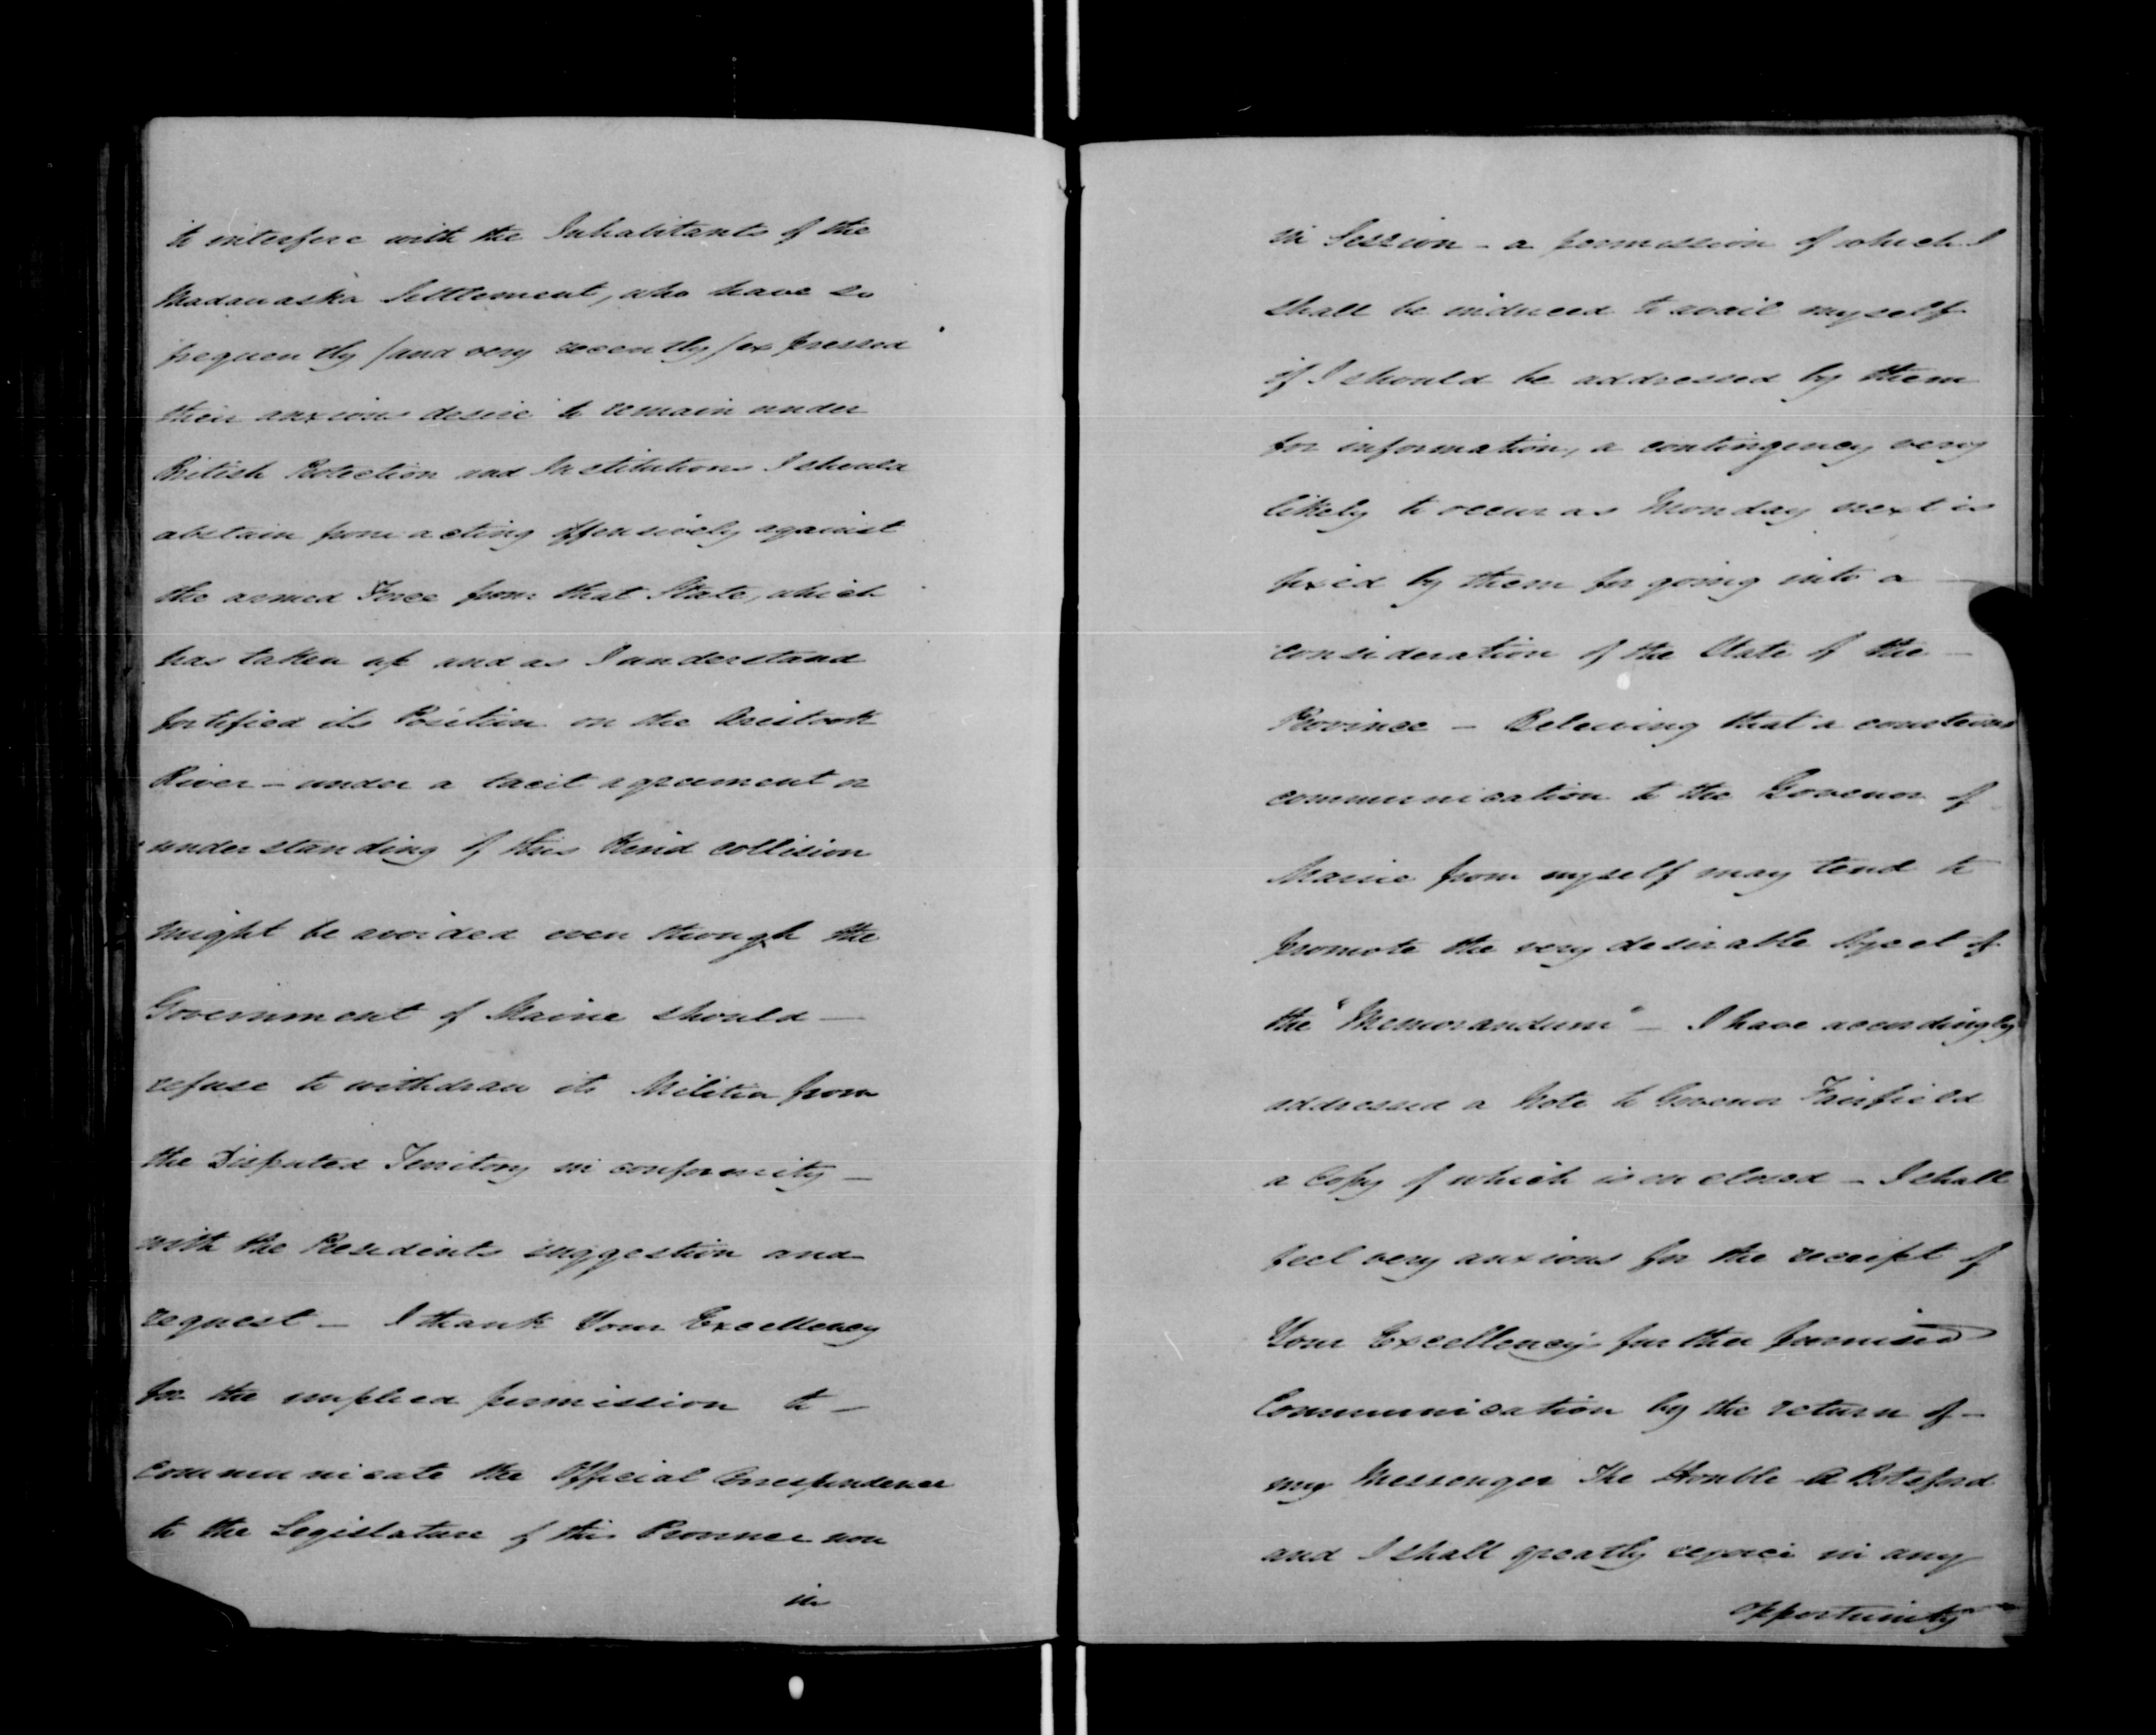 to interfere with the Inhabitants of the
Madawaska Settlement, who have so
frequently /and very recently/ expressed
their anxious desire to remain under
British Protection and Institutions I should
abstain from acting offensively against
the armed Force from that State, which
has taken up and as I understand
fortified its Position on the Aristook
River – under a tacit agreement or
understanding of this kind collision
might be avoided even though the
Government of Maine should –
refuse to withdraw its Militia from
the Disputed Territory in conformity –
with the Presidents suggestion and
request – I thank Your Excellency
for the implied permission to –
communicate the Official Correspondence
to the Legislature of this Province now
in
in Session – a permission of which I
shall be induced to avail myself
if I should be addressed by them
for information, a contingency very
likely to occur as Monday next is
fixed by them for going into a –
consideration of the State of the –
Province – Beleiving that a courteous
communication to the Govenor of
Maine from myself may tend to
promote the very desirable object of
the "Memorandum" – I have accordingly
addressed a Note to Govenor Fairfield
a Copy of which is enclosed – I shall
feel very anxious for the receipt of
Your Excellency's further promised
Communication by the return of –
my Messenger The Honble A Botsford
and I shall greatly rejoice in any
opportunity